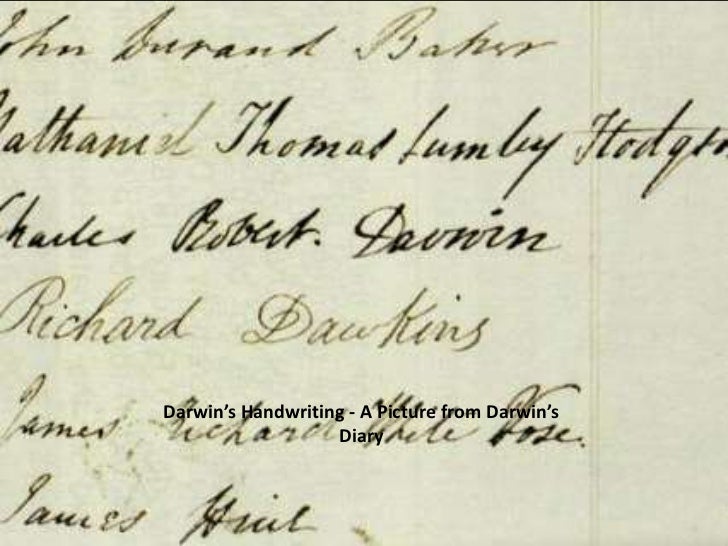 John Durand Baker
Nathaniel Thomas Lumley Hodgson
Charles Robert. Darwin
Richard Dawkins
Darwin’s Handwriting - A Picture from Darwin’s
Diary
James Richard Vose.
James